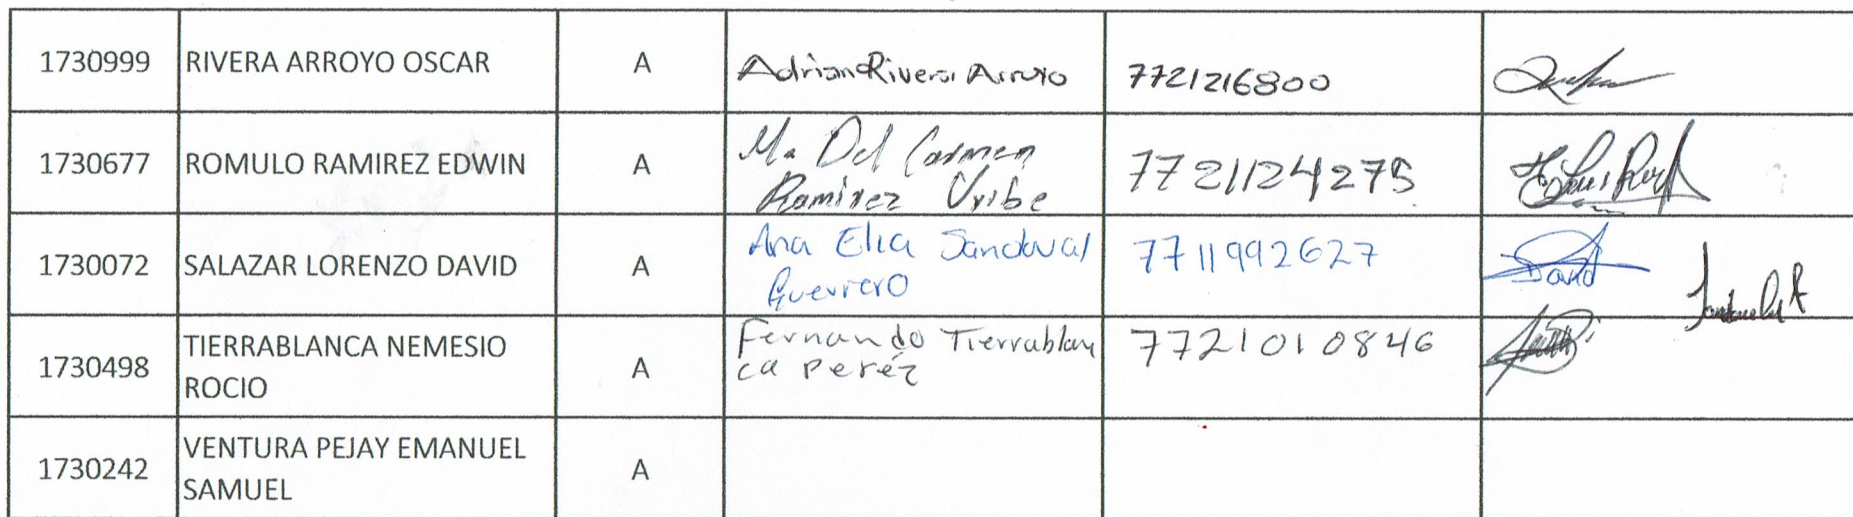 1730999 RIVERA ARROYO OSCAR A Adrian Rivera Arroyo 7721216800
1730677 ROMULO RAMIREZ EDWIN A Ma Del Carmen
Ramirez Uribe 7721124275
1730072 SALAZAR LORENZO DAVID A Ana Elia Sandoval
Guerrero 7711992627 David
1730498 TIERRABLANCA NEMESIO
ROCIO A Fernando Tierrablan
ca Peréz 7721010846
1730242 VENTURA PEJAY EMANUEL
SAMUEL A